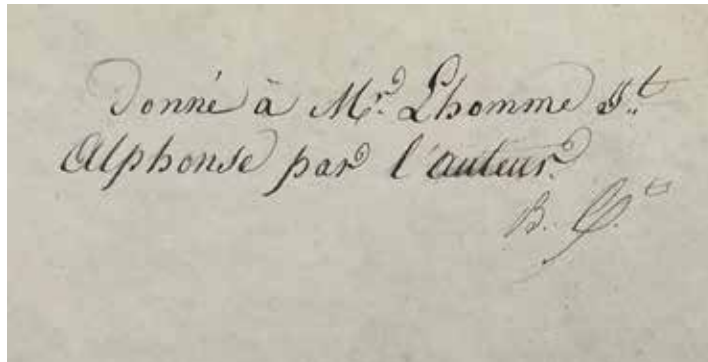 Donné à Mr. Lhomme St.
Alphonse par l'auteur.